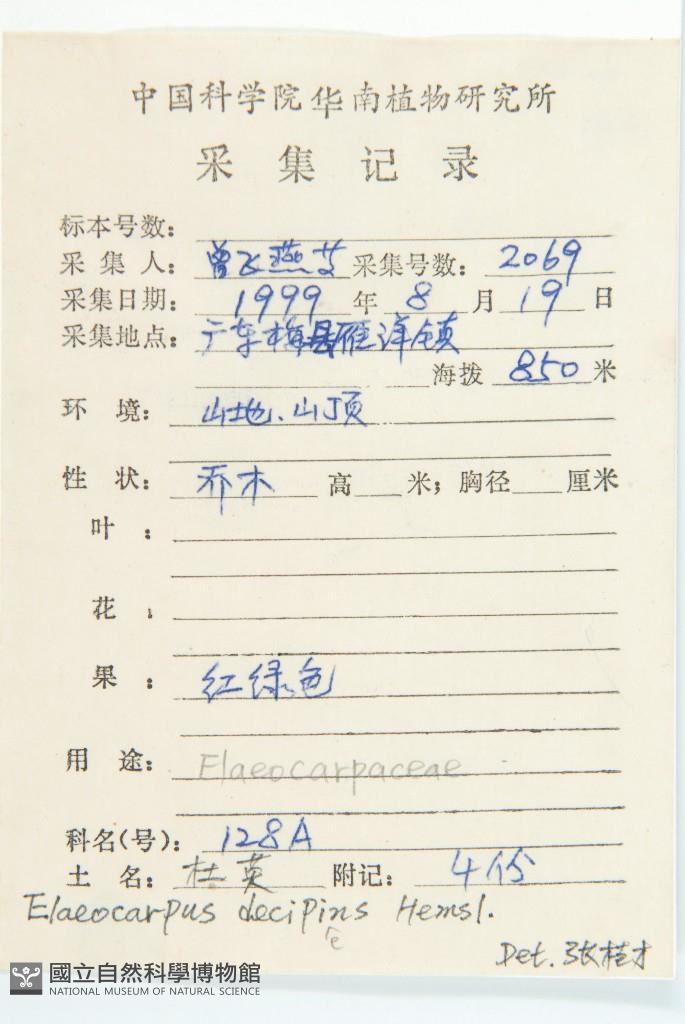 中国科学院华南植物研究所
采集记录
标本号数:
采集人: 曾飞燕等 采集号数: 2069
采集日期: 1999 年 8 月 19 日
采集地点: 广东梅县雁洋镇
海拨 850 米
环境: 山地、山顶
性状: 乔木 高 米; 胸径 厘米
叶:
花:
果: 红绿色
用途: Elaeocarpaceae
科名(号): 128A
土名: 杜英 附记: 4份
Elaeocarpus decipins Hemsl.
e
Det. 张桂才
國立自然科學博物館
NATIONAL MUSEUM OF NATURAL SCIENCE